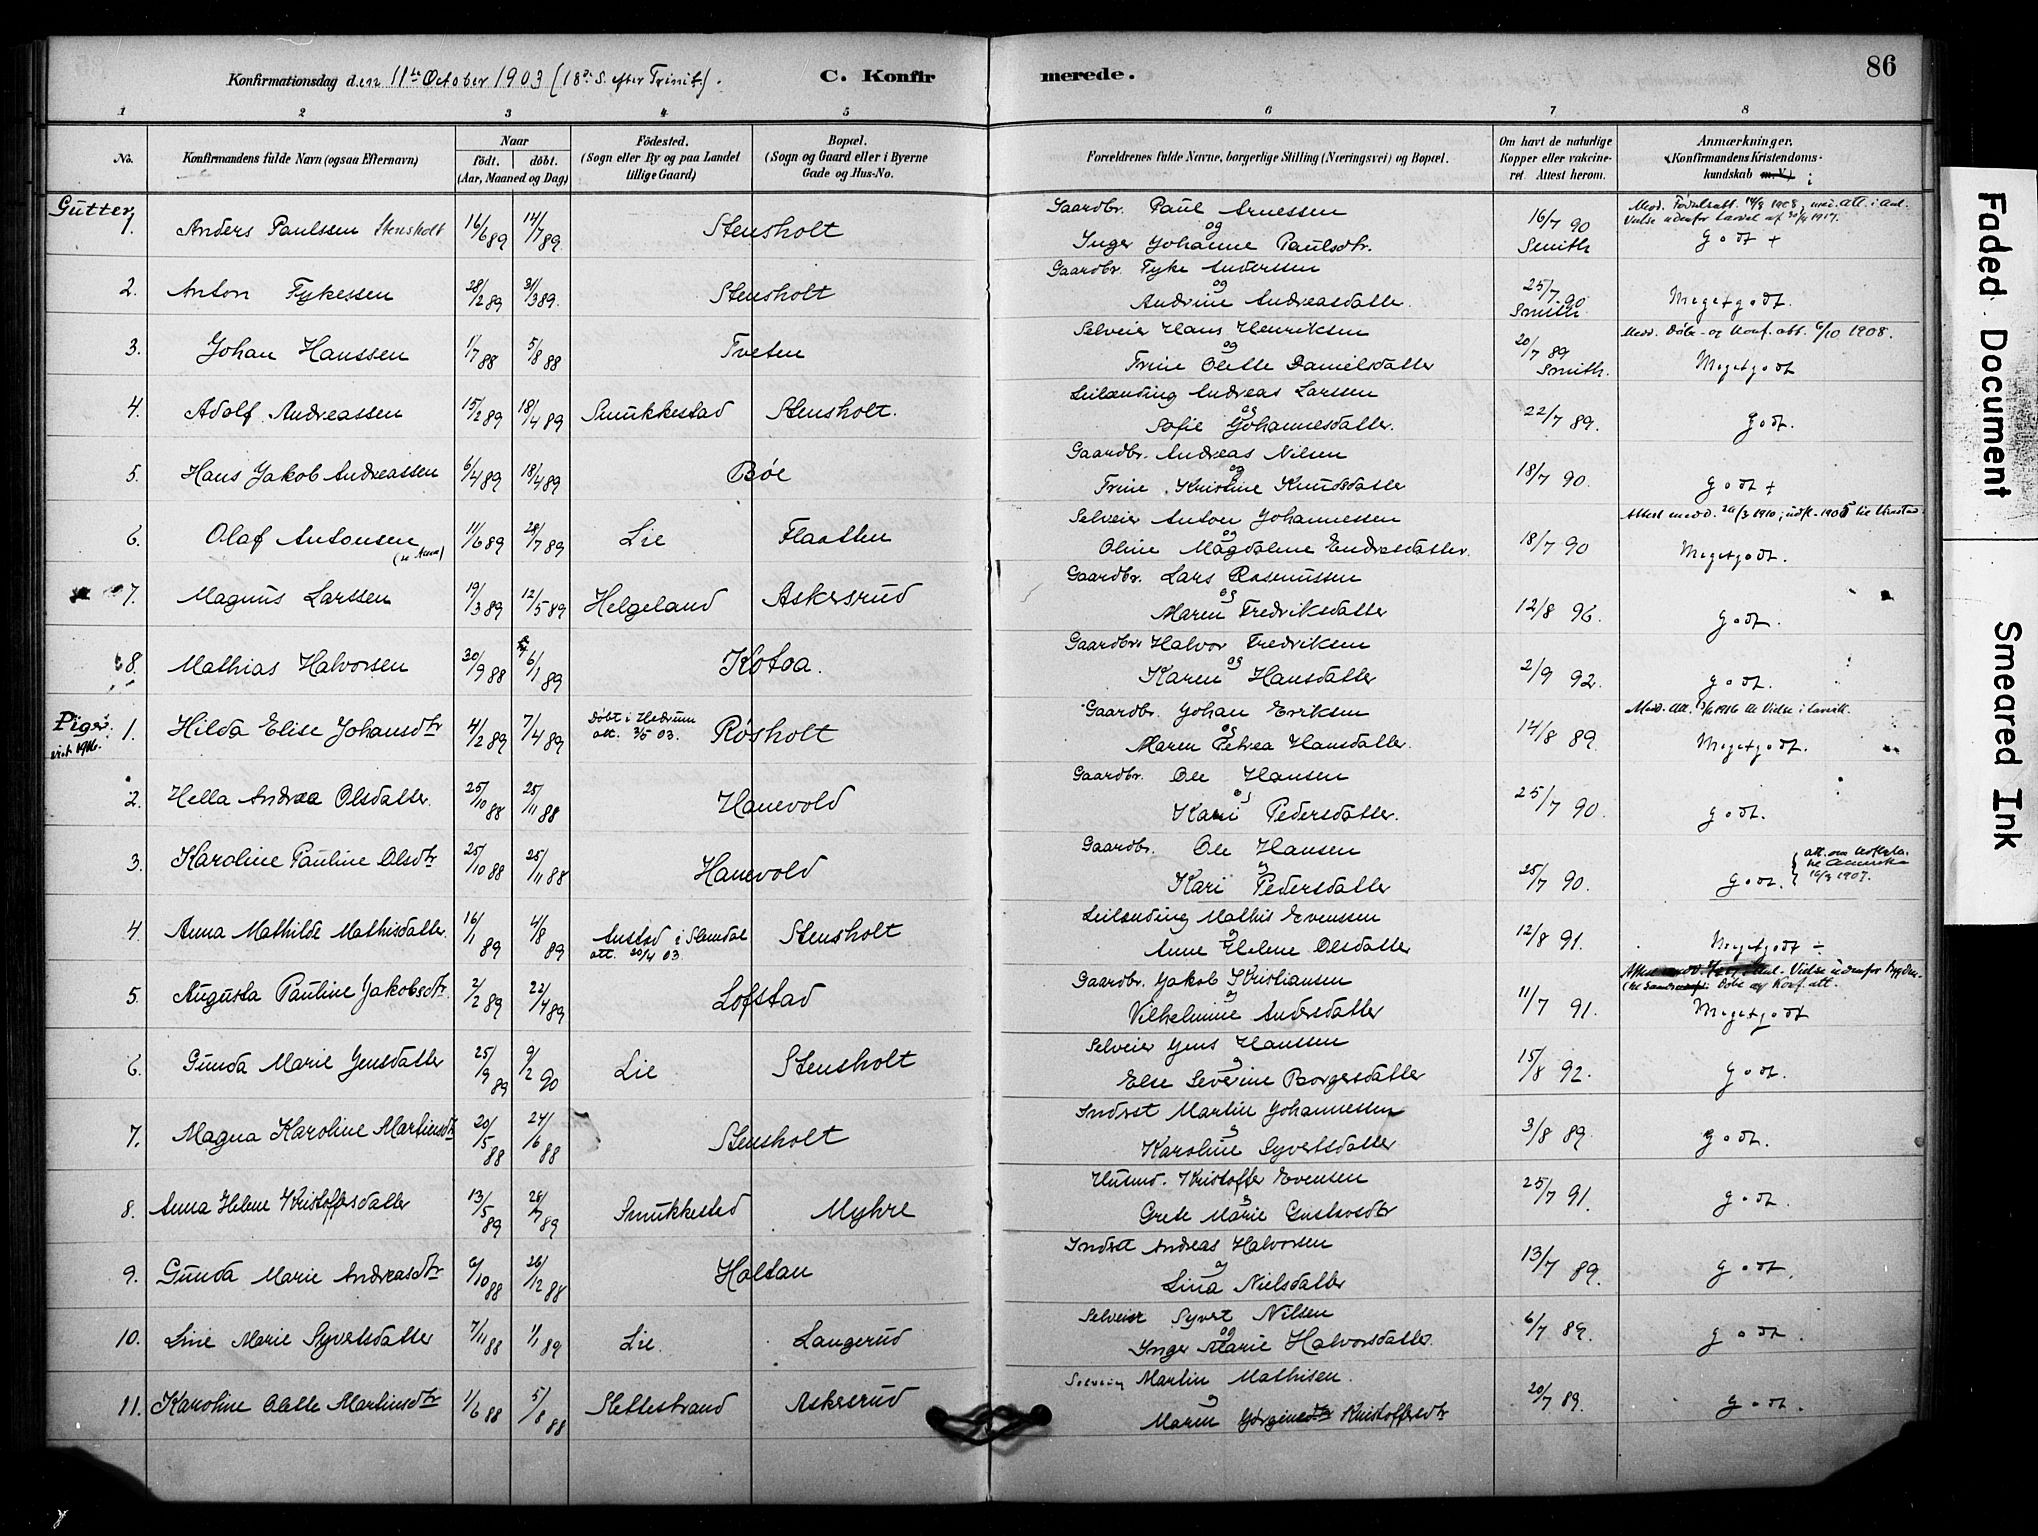 Konfirmationsdag den 11te October 1903 (18de S. efter Trinit.). C. Konfirmerede. 86
1 2 3 4 5 6 7 8
No. Konfirmandens fulde Navn (ogsaa Efternavn) Naar födt. döbt. (Aar, Maaned og Dag) Födested. (Sogn eller By og paa Landet tillige Gaard) Bopæl. (Sogn og Gaard eller i Byerne Gade og Hus-No. Forældrenes fulde Navne, borgerlige Stilling (Næringsvei) og Bopæl. Om havt de naturlige Kopper eller vakcineret. Attest herom. Anmærkninger. (Konfirmandens Kristendomskundskab m. V.)
Gutter
1. Anders Paulssen Stensholt 16/6 89 14/7 89. Stensholt Gaardbr. Paul Arnessen og Inger Johanne Paulsdtr. 16/7 90 Smith Godt +
2. Anton Fykessen 28/2 89 31/3 89. Stensholt Gaardbr. Fyke Anderssen og Andrine Andreasdatter. 25/7 90 Smith Megetgodt.
3. Johan Hanssen 1/7 88 5/8 88 Tveten Selveier Hans Henriksen og Trine Olette Danielsdatter 20/7 89 Smith. Medd. Döbe- og Konf. att. 6/10 1908. Megetgodt
4. Adolf Andreassen 15/2 89 18/4 89 Smukkestad Stensholt. Leilænding Andreas Larssen og Sofie Johannesdatter. 22/7 89. Godt.
5. Hans Jakob Andreassen 6/4 89 18/4 89 Bøe Gaardbr. Andreas Nilsen og Trine Kristine Knudsdatter 18/7 90. Godt +
6. Olaf Antonsen 11/6 89 28/7 89 Lie Flaatten Selveier Anton Johannessen og Oline Magdalene Endresdatter. 18/7 90 Megetgodt.
7. Magnus Larssen 19/3 89 12/5 89 Helgeland Askersrud Gaardbr. Lars Rasmussen og Maren Fredriksdatter 12/8 96. Godt.
8. Mathias Halvorsen 30/9 88 6/1 89 Kotaa. Gaardbr. Halvor Fredriksen og Karen Hansdatter 2/9 92. Godt.
Piger.
1. Hilda Elise Johansdtr 4/2 89 7/4 89 Döbt i Hedrum att. 3/5 03. Røsholt Gaardbr. Johan Eriksen og Maren Petrea Hansdatter. 14/8 89. Megetgodt.
2. Hella Andrea Olsdatter. 25/10 88 25/11 88 Hanevold Gaardbr. Ole Hansen og Kari Pedersdatter. 25/7 90. Godt.
3. Karoline Pauline Olsdtr 25/10 88 25/11 88 Hanevold Gaardbr. Ole Hansen og Kari Pedersdatter 25/7 90. Godt.
4. Anna Mathilde Mathisdatter. 16/1 89 4/8 89 att. 20/4 03. Stensholt Leilænding Mathis Evenssen og Anne Helene Olsdatter 12/8 91. Megetgodt ÷
5. Augusta Pauline Jakobsdtr. 2/2 89 22/4 89 Lofstad Gaardbr. Jakob Kristiansen og Vilhelmine Andersdatter 11/7 91. Megetgodt
6. Gunda Marie Jensdatter 25/9 89 9/2 90 Lie Stensholt Selveier Jens Hanssen og Else Severine Borgersdatter 15/8 92. Godt.
7. Magna Karoline Martinsdtr 20/5 88 24/6 88 Stensholt Inderst Martin Johannessen og Karoline Syvertsdatter 3/8 89. Godt.
8. Anna Helene Kristoffersdatter 13/5 89 28/7 89 Smukkestad Myhre Husmd. Kristoffer Evensen og Grete Marie Gustavsdtr 25/7 91. Godt.
9. Gunda Marie Andreasdtr 6/10 88 26/12 88 Holtan Inderst Andreas Halvorsen og Lina Nielsdatter 13/7 89. Godt.
10. Line Marie Syvertsdatter 7/11 88 1/1 89 Lie. Langerud Selveier Syvert Nilsen og Inger Marie Halvorsdatter. 6/7 89. Godt.
11. Karoline Olette Martinsdtr 1/6 88 5/8 88 Slettestrand Askerrud Selveier Martin Mathisen. og Maren Jørginedtr Kristoffersdtr 20/7 89. Godt.
Faded Document
Smeared Ink